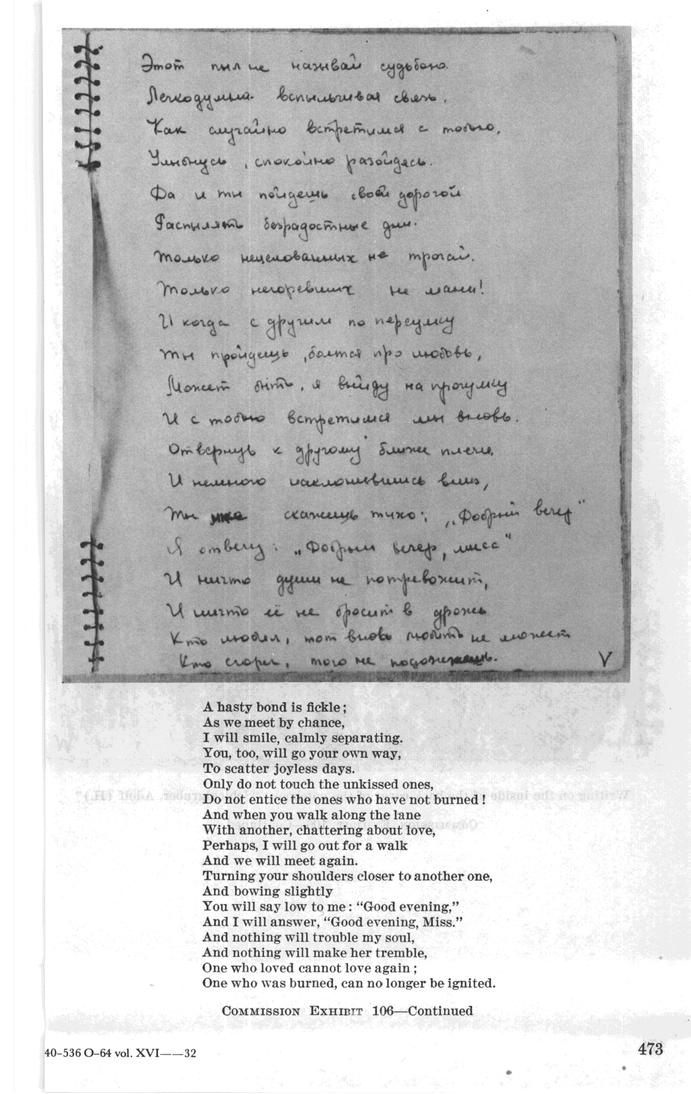 Этот пыл не называй судьбою
Легкодумна вспыльчивая связь,
Как случайно встретимся с тобою,
Улыбнусь, спокойно разойдясь.
Да и ты пойдешь своей дорогой
Распылять безрадостные дни.
Только нецелованных не трогай.
Только негоревших не мани!
И когда с другим по переулку
Ты пройдешь, болтая про любовь,
Может быть, я выйду на прогулку
И с тобою встретимся мы вновь.
Отвернув к другому ближе плечи,
И немного наклонившись вниз,
Ты скажешь тихо: „Добрый вечер"
Я отвечу: „Добрый вечер, мисс"
И ничто души не потревожит,
И ничто её не бросит в дрожь
Кто любил, тот вновь любить не может
Кто сгорел, того не подожжешь.
V
A hasty bond is fickle;
As we meet by chance,
I will smile, calmly separating.
You, too, will go your own way,
To scatter joyless days.
Only do not touch the unkissed ones,
Do not entice the ones who have not burned!
And when you walk along the lane
With another, chattering about love,
Perhaps, I will go out for a walk
And we will meet again.
Turning your shoulders closer to another one,
And bowing slightly
You will say low to me: “Good evening,”
And I will answer, “Good evening, Miss.”
And nothing will trouble my soul,
And nothing will make her tremble,
One who loved cannot love again;
One who was burned, can no longer be ignited.
COMMISSION EXHIBIT 106—Continued
40-536 O-64 vol. XVI——32
473